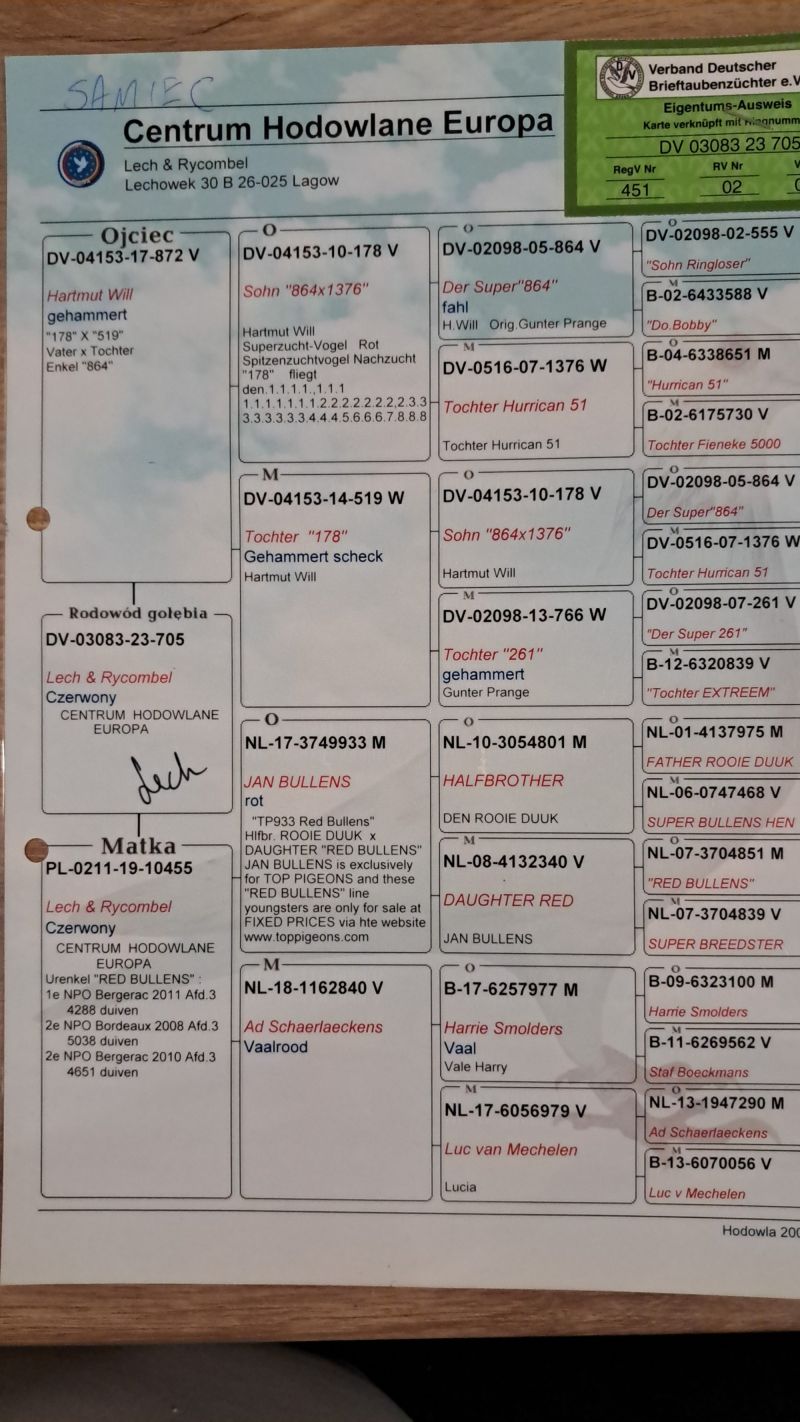 SAMIEC
Centrum Hodowlane Europa
Lech & Rycombel
Lechowek 30 B 26-025 Lagow
Verband Deutscher
Brieftaubenzüchter e.V
Eigentums-Ausweis
Karte verknüpft mit Ringnumm
DV 03083 23 705
RegV Nr
RV Nr
V
451
02
Ojciec
DV-04153-17-872 V
Hartmut Will
gehammert
"178" X "519"
Vater x Tochter
Enkel "864"
Rodowód gołębia
DV-03083-23-705
Lech & Rycombel
Czerwony
CENTRUM HODOWLANE
EUROPA
Lech
Matka
PL-0211-19-10455
Lech & Rycombel
Czerwony
CENTRUM HODOWLANE
EUROPA
Urenkel "RED BULLENS" :
1e NPO Bergerac 2011 Afd.3
4288 duiven
2e NPO Bordeaux 2008 Afd.3
5038 duiven
2e NPO Bergerac 2010 Afd.3
4651 duiven
O
DV-04153-10-178 V
Sohn "864x1376"
Hartmut Will
Superzucht-Vogel Rot
Spitzenzuchtvogel Nachzucht
"178" fliegt
den.1.1.1.1.,1.1.1
1.1.1.1.1.1.1.2.2.2.2.2.2.2,2.3.3
3.3.3.3.3.3.4.4.4.5.6.6.6.7.8.8.8
M
DV-04153-14-519 W
Tochter "178"
Gehammert scheck
Hartmut Will
O
NL-17-3749933 M
JAN BULLENS
rot
"TP933 Red Bullens"
Hlfbr. ROOIE DUUK x
DAUGHTER "RED BULLENS"
JAN BULLENS is exclusively
for TOP PIGEONS and these
"RED BULLENS" line
youngsters are only for sale at
FIXED PRICES via hte website
www.toppigeons.com
M
NL-18-1162840 V
Ad Schaerlaeckens
Vaalrood
O
DV-02098-05-864 V
Der Super"864"
fahl
H.Will Orig.Gunter Prange
M
DV-0516-07-1376 W
Tochter Hurrican 51
Tochter Hurrican 51
O
DV-04153-10-178 V
Sohn "864x1376"
Hartmut Will
M
DV-02098-13-766 W
Tochter "261"
gehammert
Gunter Prange
O
NL-10-3054801 M
HALFBROTHER
DEN ROOIE DUUK
M
NL-08-4132340 V
DAUGHTER RED
JAN BULLENS
O
B-17-6257977 M
Harrie Smolders
Vaal
Vale Harry
M
NL-17-6056979 V
Luc van Mechelen
Lucia
O
DV-02098-02-555 V
"Sohn Ringloser"
M
B-02-6433588 V
"Do.Bobby"
O
B-04-6338651 M
"Hurrican 51"
M
B-02-6175730 V
Tochter Fieneke 5000
O
DV-02098-05-864 V
Der Super"864"
M
DV-0516-07-1376 W
Tochter Hurrican 51
O
DV-02098-07-261 V
"Der Super 261"
M
B-12-6320839 V
"Tochter EXTREEM"
O
NL-01-4137975 M
FATHER ROOIE DUUK
M
NL-06-0747468 V
SUPER BULLENS HEN
O
NL-07-3704851 M
"RED BULLENS"
M
NL-07-3704839 V
SUPER BREEDSTER
O
B-09-6323100 M
Harrie Smolders
M
B-11-6269562 V
Staf Boeckmans
O
NL-13-1947290 M
Ad Schaerlaeckens
M
B-13-6070056 V
Luc v Mechelen
Hodowla 200